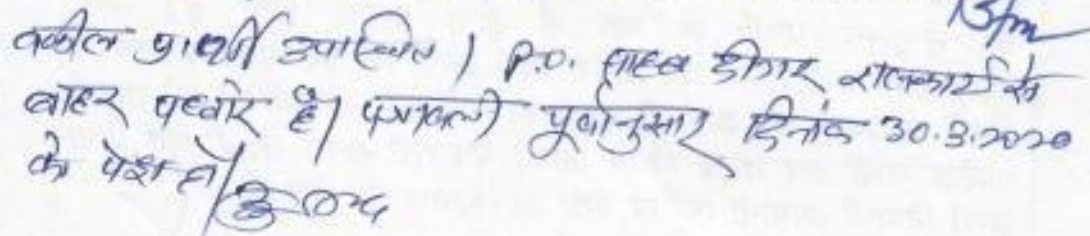 वकील प्रार्थी उपस्थित। P.O. साहब दीगर राजकार्य से
बाहर पधारे है। पत्रावली पूर्वानुसार दिनांक 30.3.2020
को पेश हो।